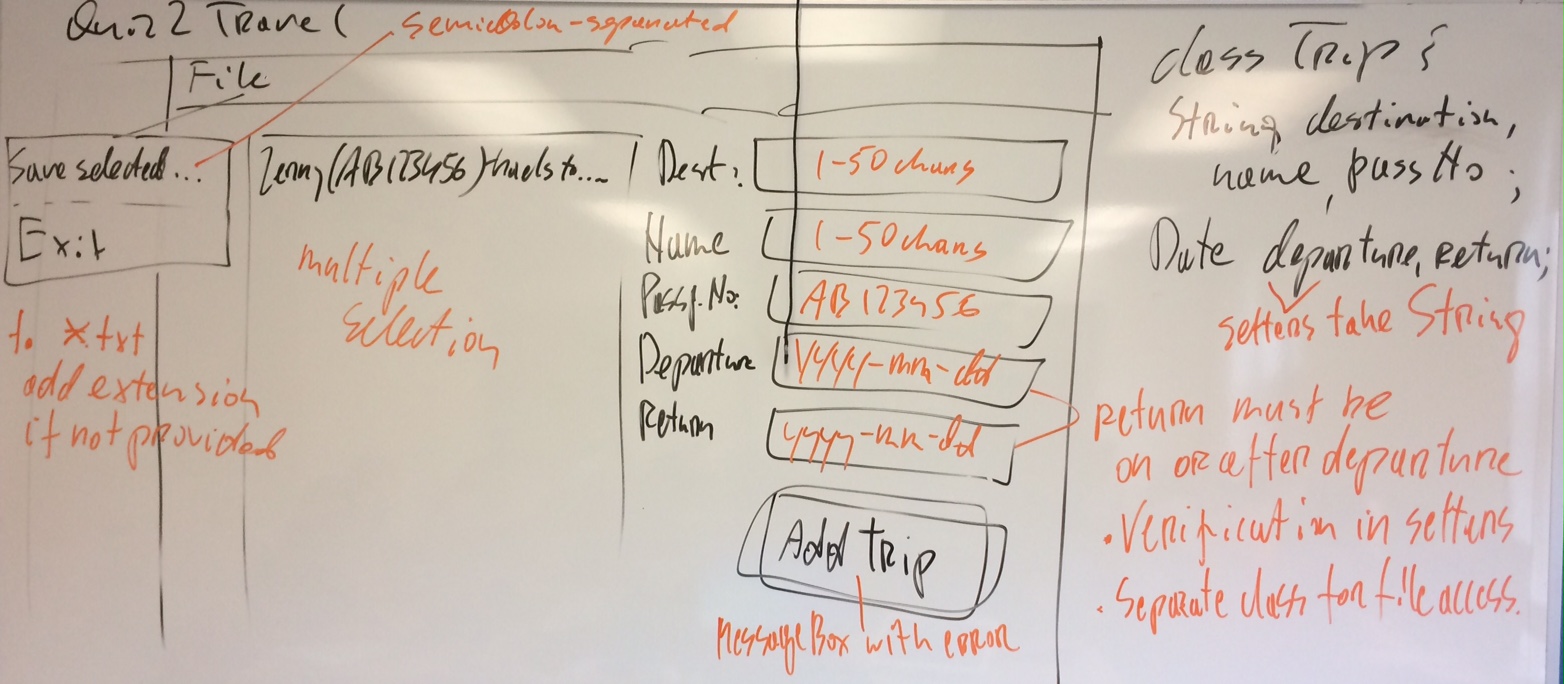 Quiz 2 Travel
semicolon-separated
File
Save selected...
Exit
f. *.txt
add extension
if not provided
Jerry (AB123456) travels to....
multiple
selection
Dest:
1-50 chars
Name
1-50 chars
Passp. No:
AB 123456
Departure
yyyy-mm-dd
Return
yyyy-mm-dd
Add trip
MessageBox with error
class Trip {
String destination,
name, passNo ;
Date departure, return;
setters take String
return must be
on or after departure
. Verification in setters
. Separate class for file access.